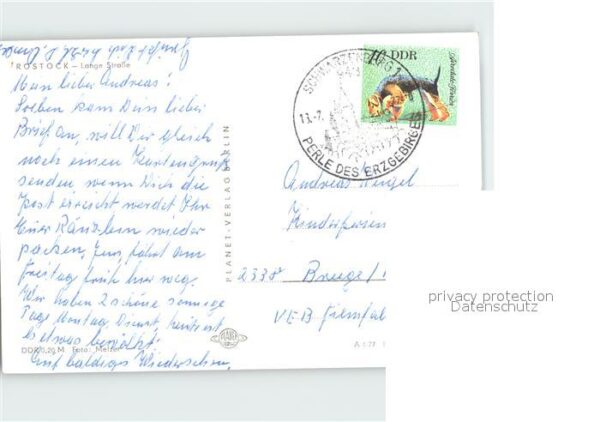 ROSTOCK — Lange Straße
Mein lieber Andreas!
Soeben kam Dein lieber
Brief an, will Dir gleich
noch einen Kartengruß
senden wenn Dich die
Post erreicht werdet Ihr
Eure Ränzlein wieder
packen, Jens fährt am
Freitag früh hier weg.
Wir haben 2 schöne sonnige
Tage Montag, Dienst, heute ist
es etwas bewölkt.
Auf baldiges Wiedersehen,
DDR 0,20 M Foto:
PLANET-VERLAG BERLIN
PLANET
SCHWARZENBERG 1
13.-7.
PERLE DES ERZGEBIRGES
10 DDR
Andreas
Kinderferien
2338
VEB
privacy protection
Datenschutz